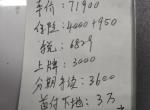 车价:71900
保险:4000+950
税:6829
上牌:3000
分期手续:3600
首付下地:3万